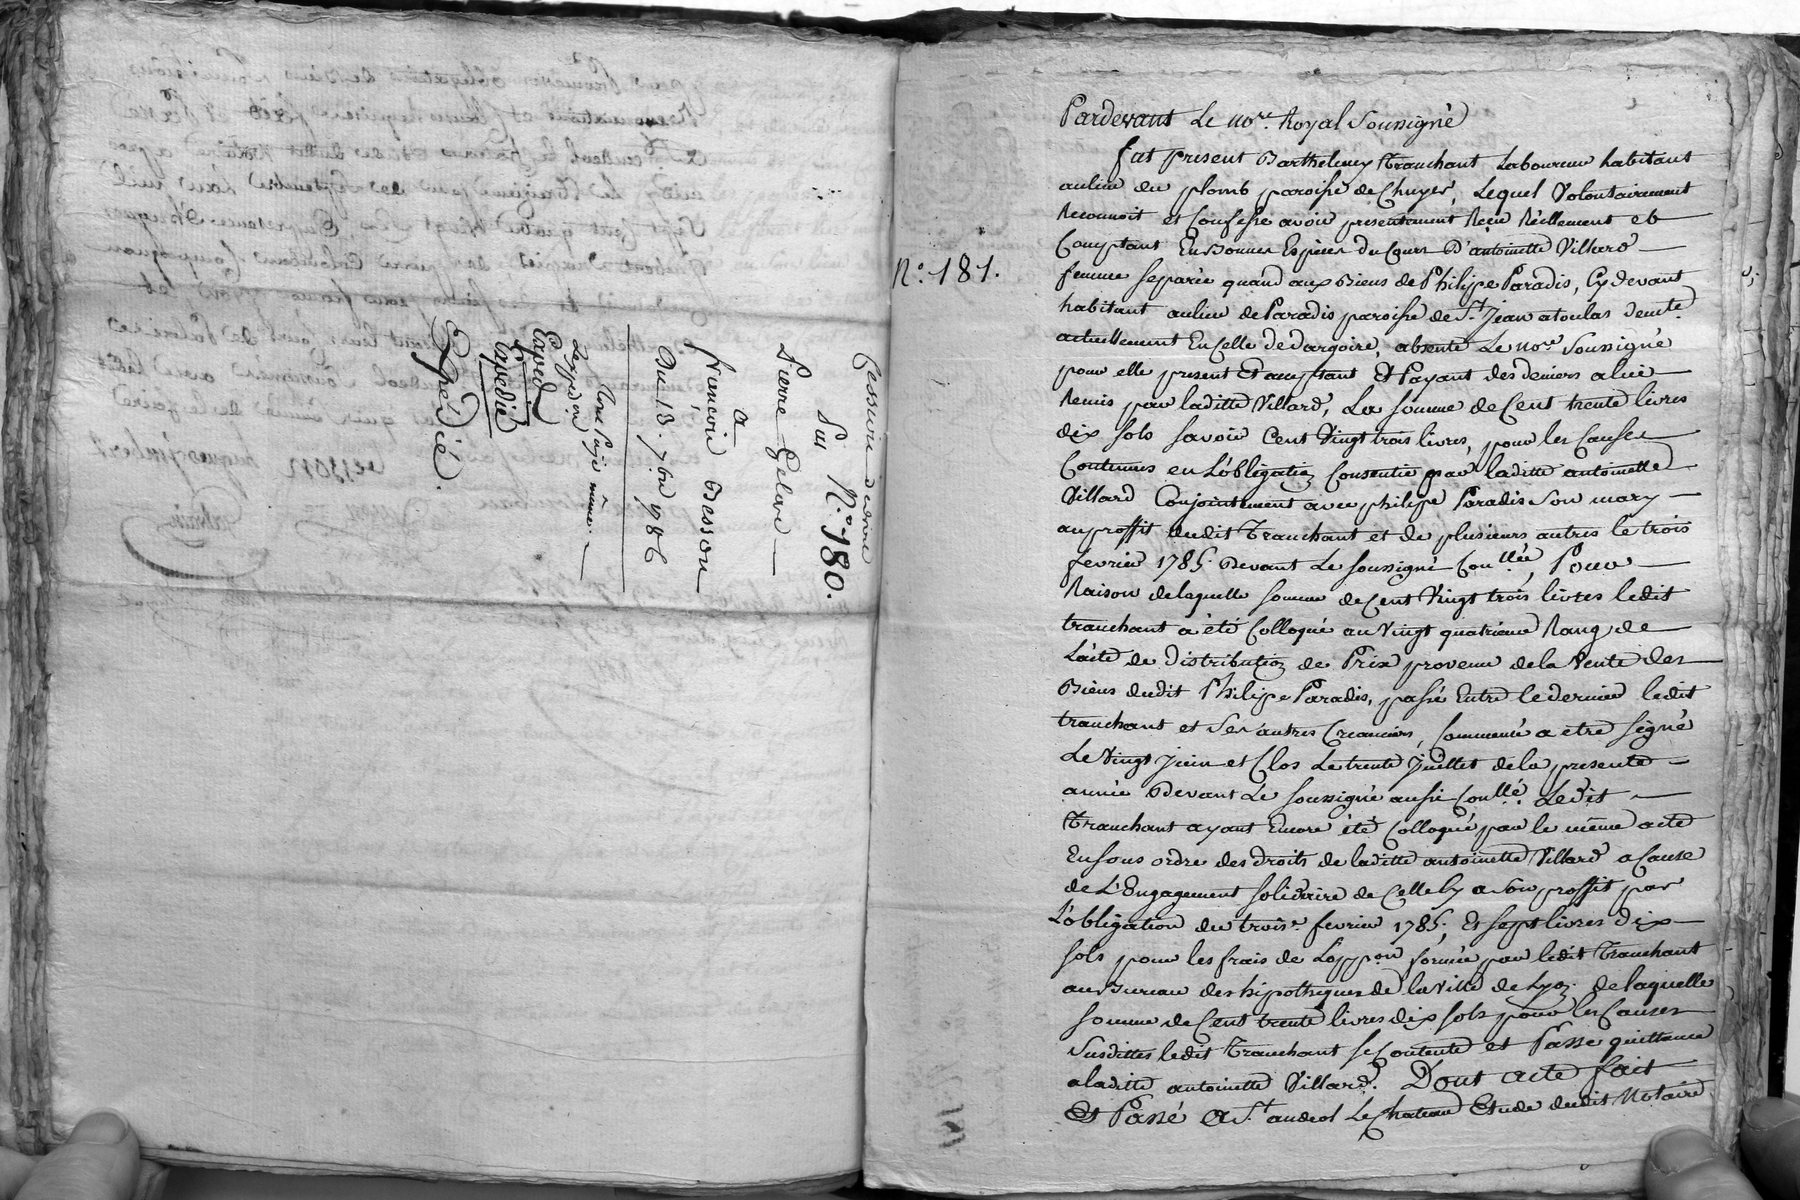 N.° 180.
Sur
Pierre Gelas
a
françois Besson
Du 13. 7bre 1786
Exped
Expedié
Expedié.
N.° 181.
Pardevant Le nore. Royal Soussigné
fut present Barthelemy Tranchant Laboureur habitant
au lieu du plomb paroisse de Chuyer, Lequel Volontairement
Reconnoit et Confesse avoir presentement Reçu Réellement et
Comptant En Bonnes Espèces du Cours D'antoinette Villard
femme separée quand aux Biens de Philipe Paradis, Cy devant
habitant au lieu de Paradis paroisse de St. Jean atoulas demte.
actuellement En Celle de dargoire, absente Le nore. Soussigné
pour elle present Et acceptant Et Payant des deniers a lui
Remis par laditte Villard, La somme de Cent trente livres
dix sols savoir Cent Vingt trois livres, pour les Causes
Contenues en L'obligation Consentie par laditte antoinette
Villard Conjointement avec philipe Paradis Son mary
au proffit dudit Tranchant et de plusieurs autres le trois
fevrier 1785. Devant Le soussigné Conllée, Pour
Raison de laquelle somme de Cent Vingt trois livres ledit
tranchant a été Colloqué au Vingt quatrieme Rang de
L'acte de distribution de Prix provenu de la Vente des
Biens dudit Philipe Paradis, passé Entre le dernier ledit
tranchant et Ses autres Creanciers, Commencé a etre signé
Le Vingt Juin et Clos Le trente Juillet de la presente
année Devant Le soussigné aussi Conllé. Ledit
Tranchant ayant Encore été Colloqué par le même acte
En sous ordre des droits de laditte antoinette Villard a Cause
de L'Engagement solidaire de Celle Cy a Son proffit par
L'obligation du trois. fevrier 1785; Et sept livres dix
sols pour les frais de L'oppon formée par ledit Tranchant
au Bureau des hipotheques de la Ville de Lyon. de laquelle
somme de Cent trente livres dix sols pour les Causes
Susdittes ledit Tranchant se Contente et Passe quittance
a laditte antoinette Villard. Dont acte fait
Et Passé a St. andeol Le Chateau Etude dudit Notaire